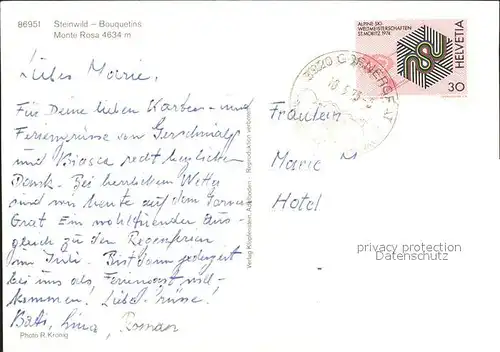 86951 Steinwild – Bouquetins
Monte Rosa 4634 m
ALPINE-SKI-
WELTMEISTERSCHAFTEN
ST. MORITZ, 1974
HELVETIA
30
3920 GORNERGRAT
Liebes Marie,
Für Deine lieben Karten- und
Feriengrüsse von
und Biasca recht herzlichen
Dank. Bei herrlichem Wetter
sind wir heute auf dem Gorner
Grat. Ein wohltuender Aus-
gleich zu den Regenferien
im Juli. Bist dann
bei uns als Feriengast
Liebe Grüsse!
Roman
Photo R. Kronig
Verlag Klopfenstein, Adelboden - Reproduktion verboten
Fräulein
Marie M
Hotel
privacy protection
Datenschutz